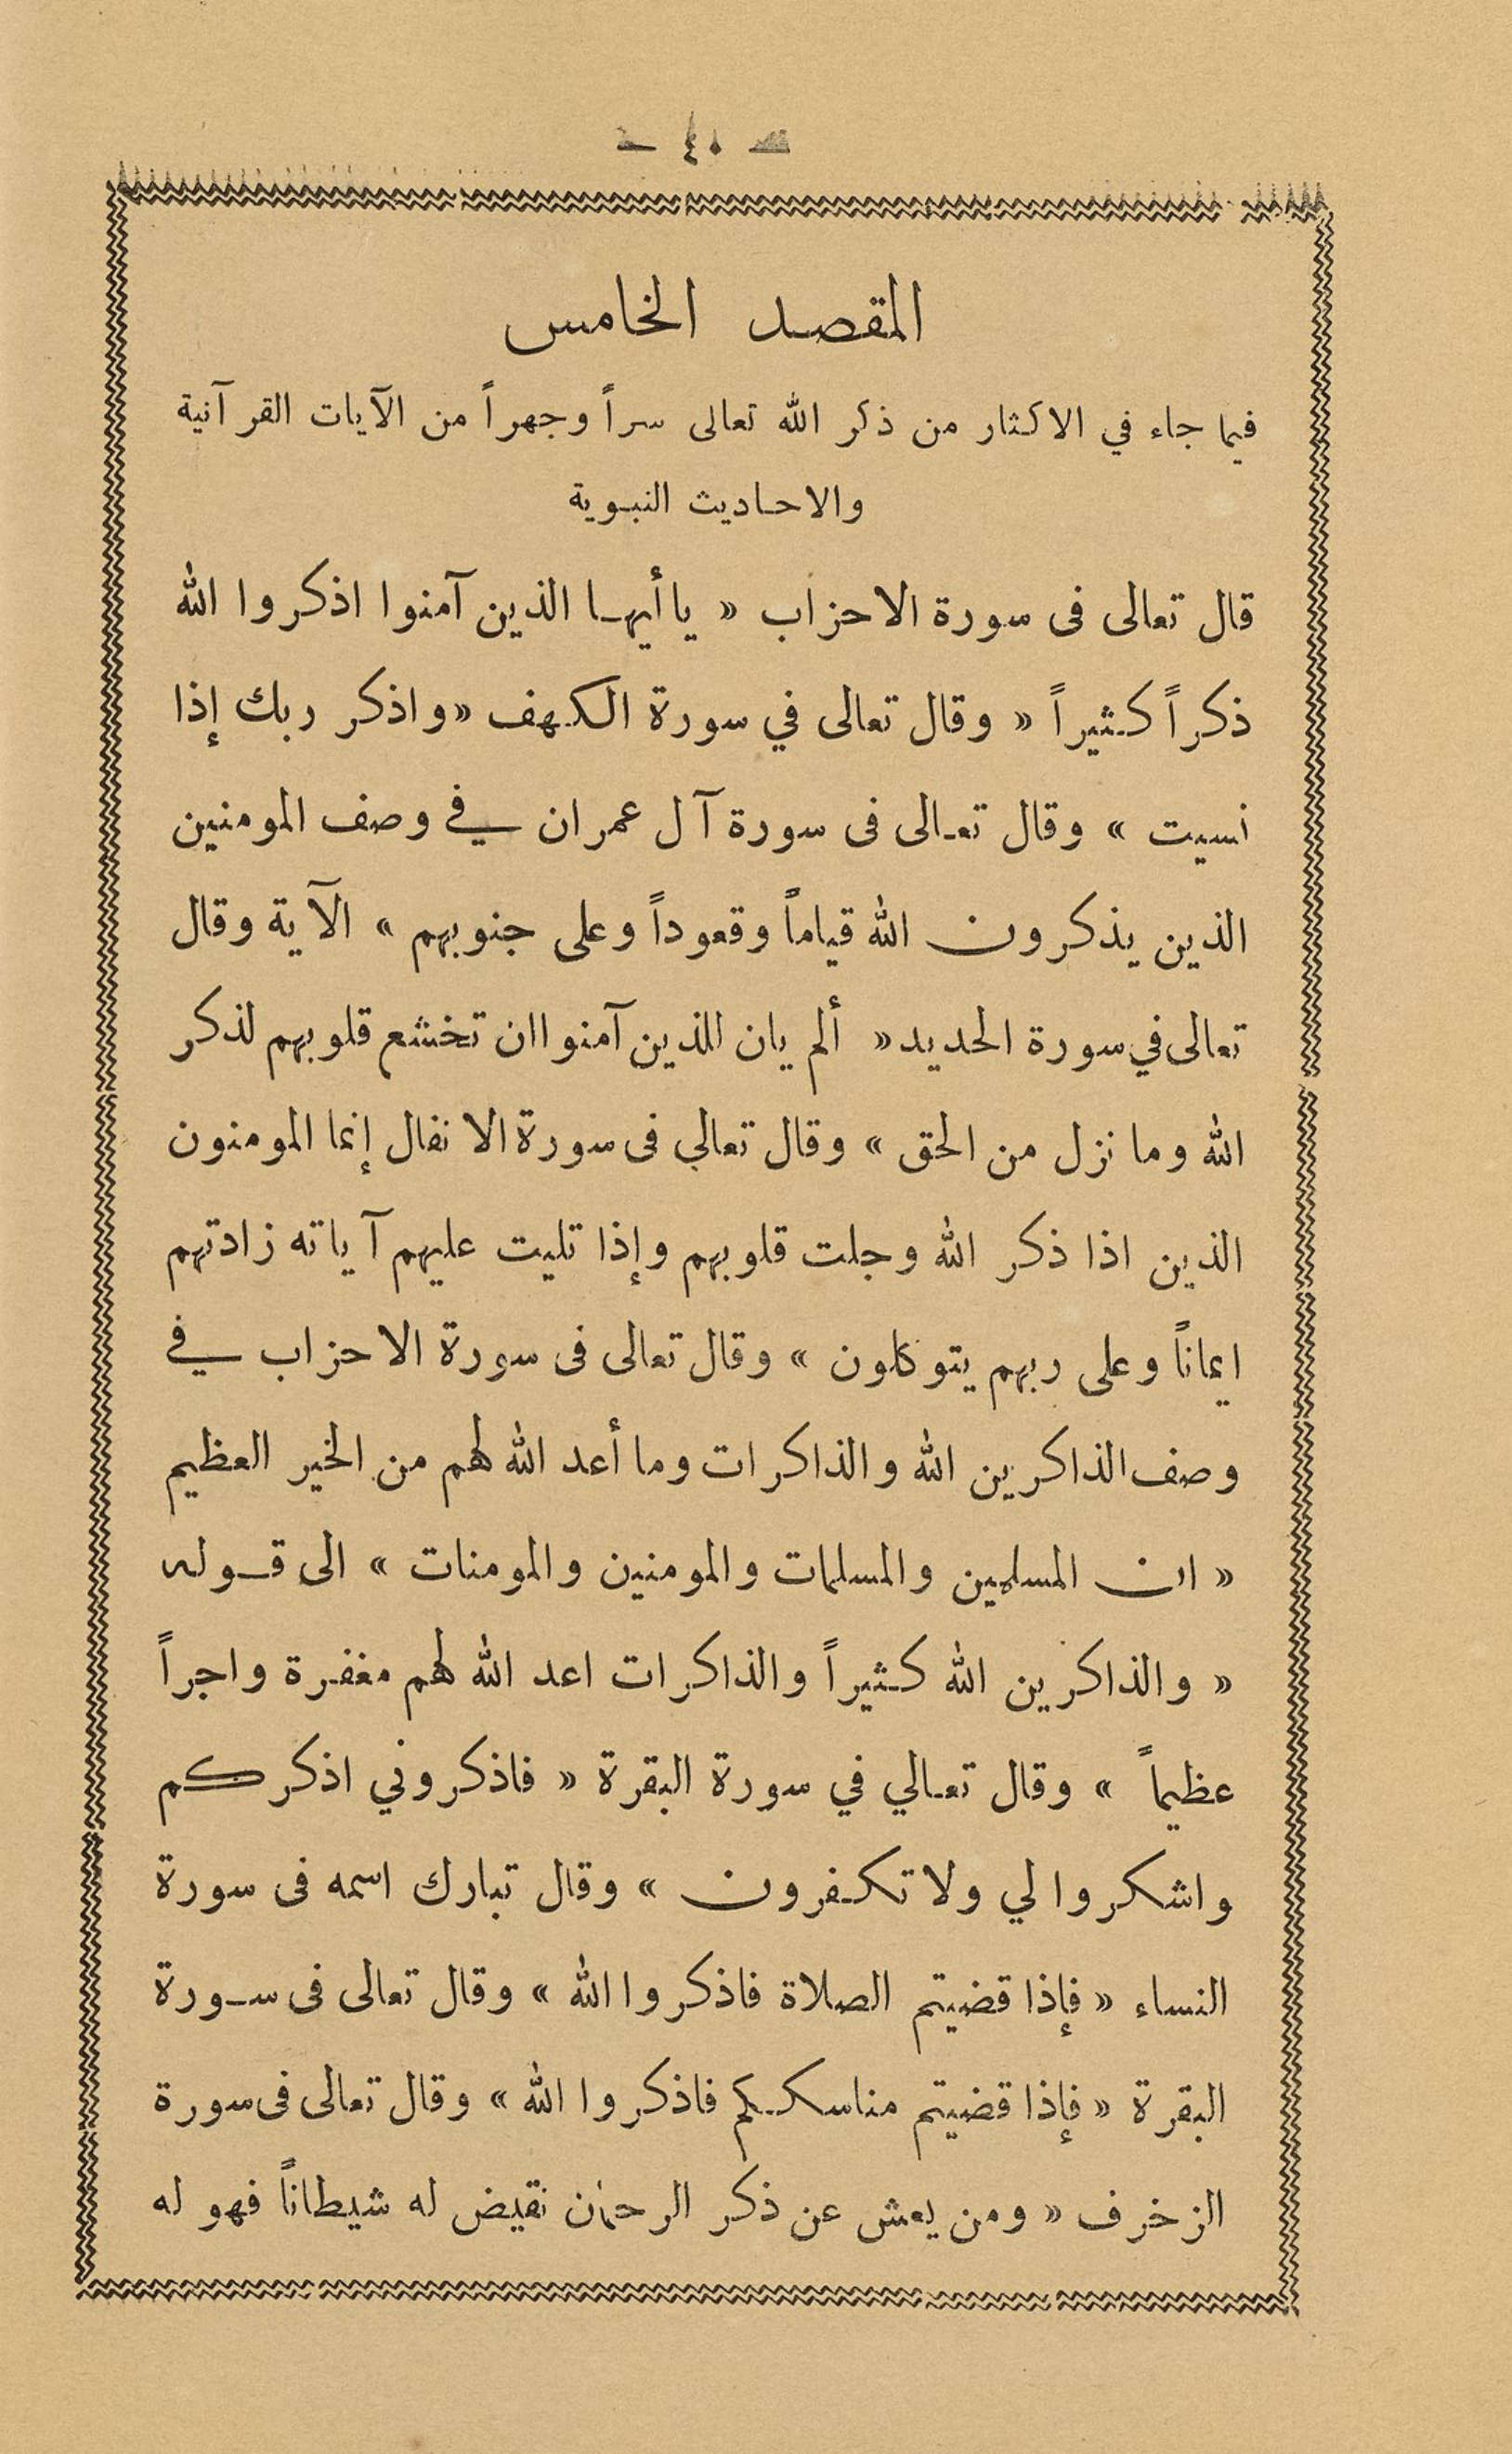 — ٤٠ —
المقصد الخامس
فيما جاء في الاكثار من ذكر الله تعالى سراً وجهراً من الآيات القرآنية
والاحاديث النبوية
قال تعالى فى سورة الاحزاب « ياأيها الذين آمنوا اذكروا الله
ذكراً كثيراً « وقال تعالى في سورة الكهف «واذكر ربك إذا
نسيت » وقال تعالى فى سورة آل عمران في وصف المومنين
الذين يذكرون الله قياماً وقعوداً وعلى جنوبهم » الآية وقال
تعالى في سورة الحديد« ألم يان للذين آمنوا ان تخشع قلوبهم لذكر
الله وما نزل من الحق » وقال تعالي فى سورة الانفال إنما المومنون
الذين اذا ذكر الله وجلت قلوبهم وإذا تليت عليهم آياته زادتهم
ايماناً وعلى ربهم يتوكلون » وقال تعالى فى سورة الاحزاب في
وصف الذاكرين الله والذاكرات وما أعد الله لهم من الخير العظيم
« ان المسلمين والمسلمات والمومنين والمومنات » الى قوله
« والذاكرين الله كثيراً والذاكرات اعد الله لهم مغفرة واجراً
عظيماً » وقال تعالي في سورة البقرة « فاذكروني اذكركم
واشكروا لي ولا تكفرون » وقال تبارك اسمه فى سورة
النساء « فإذا قضيتم الصلاة فاذكروا الله » وقال تعالى فى سورة
البقرة « فإذا قضيتم مناسككم فاذكروا الله » وقال تعالى فى سورة
الزخرف « ومن يعش عن ذكر الرحمٰن نقيض له شيطاناً فهو له